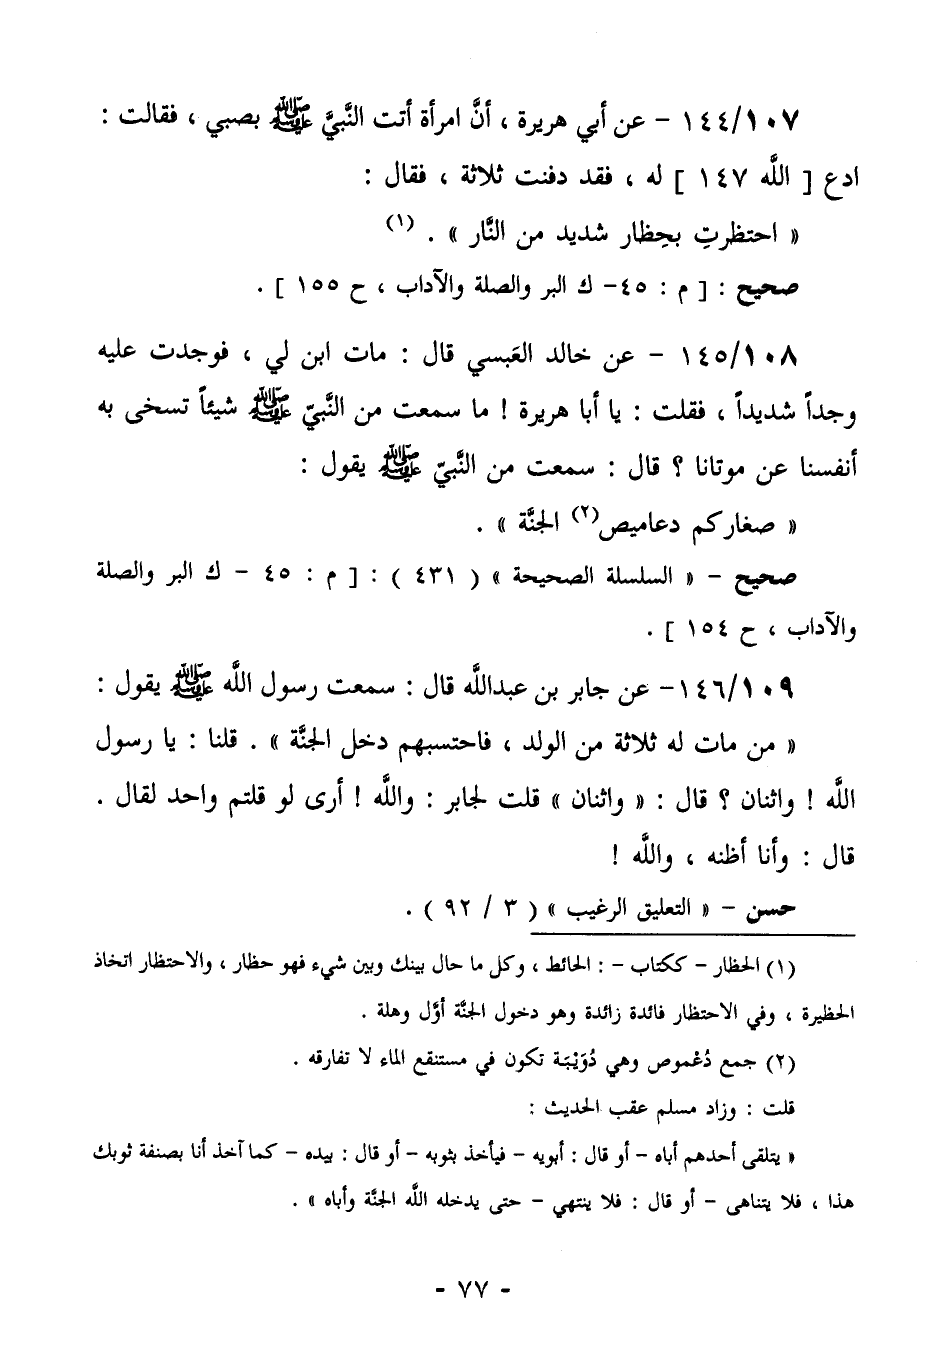 ١٤٤/١٠٧ – عن أبي هريرة ، أنَّ امرأة أتت النَّبيَّ ﷺ بصبي ، فقالت :
ادع [ اللَّه ١٤٧ ] له ، فقد دفنت ثلاثة ، فقال :
« احتظرتِ بحِظار شديد من النَّار » . (١)
صحيح : [ م : ٤٥– ك البر والصلة والآداب ، ح ١٥٥ ] .
١٤٥/١٠٨ – عن خالد العَبسي قال : مات ابن لي ، فوجدت عليه
وجداً شديداً ، فقلت : يا أبا هريرة ! ما سمعت من النَّبيّ ﷺ شيئاً تسخى به
أنفسنا عن موتانا ؟ قال : سمعت من النَّبيّ ﷺ يقول :
« صغاركم دعاميص(٢) الجنَّة » .
صحيح – « السلسلة الصحيحة » ( ٤٣١ ) : [ م : ٤٥ – ك البر والصلة
والآداب ، ح ١٥٤ ] .
١٤٦/١٠٩– عن جابر بن عبداللَّه قال : سمعت رسول اللَّه ﷺ يقول :
« من مات له ثلاثة من الولد ، فاحتسبهم دخل الجنَّة » . قلنا : يا رسول
اللَّه ! واثنان ؟ قال : « واثنان » قلت لجابر : واللَّه ! أرى لو قلتم واحد لقال .
قال : وأنا أظنه ، واللَّه !
حسن – « التعليق الرغيب » ( ٣ / ٩٢ ) .
(١) الحظار – ككتاب – : الحائط ، وكل ما حال بينك وبين شيء فهو حظار ، والاحتظار اتخاذ
الحظيرة ، وفي الاحتظار فائدة زائدة وهو دخول الجنَّة أوَّل وهلة .
(٢) جمع دُعْموص وهي دُوَيْبَة تكون في مستنقع الماء لا تفارقه .
قلت : وزاد مسلم عقب الحديث :
« يتلقى أحدهم أباه – أو قال : أبويه – فيأخذ بثوبه – أو قال : بيده – كما آخذ أنا بصنفة ثوبك
هذا ، فلا يتناهى – أو قال : فلا ينتهي – حتى يدخله اللَّه الجنَّة وأباه » .
- ٧٧ -